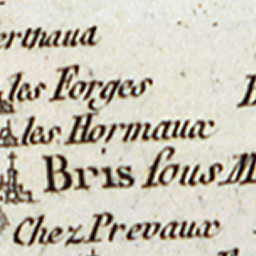 erthaud
les Forges
les Hormaux
Bris ſous M
Chez Prevaux